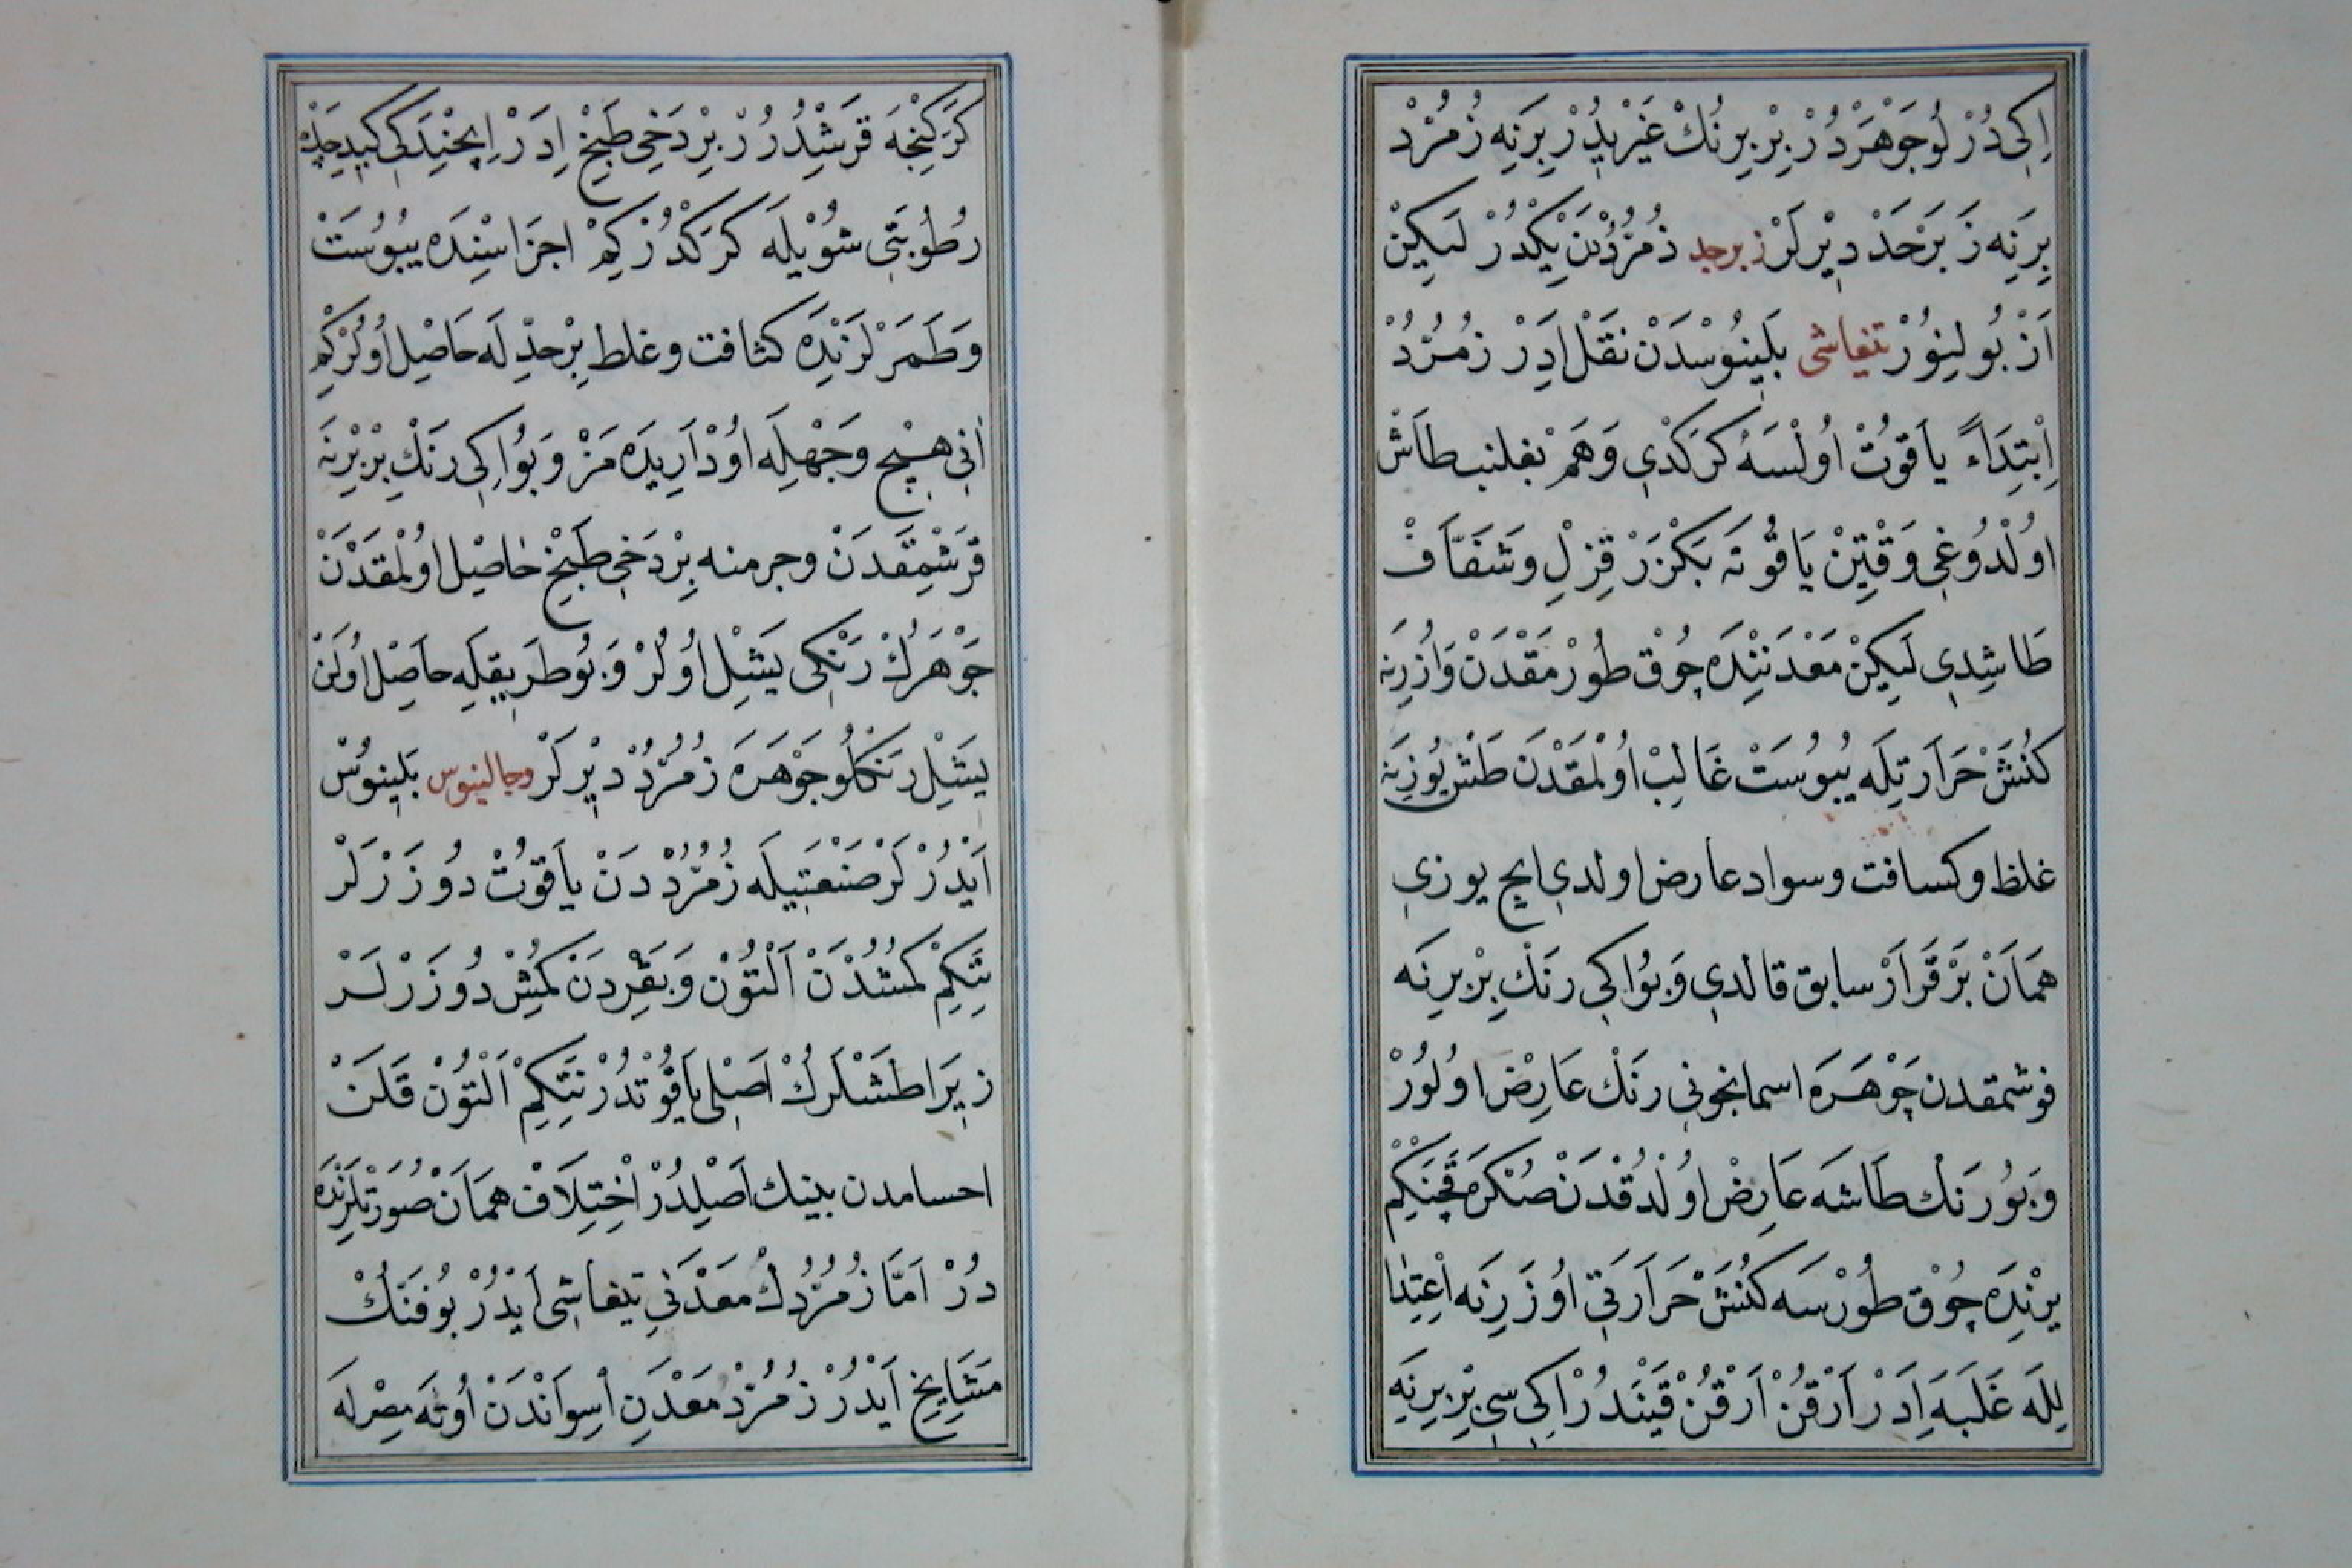 اِكِى دُرْلُو جَوْهَرْدُرْ بِرْ بِرِنُكْ غَيْرِيدُرْ بِرَنِه زُمُرُدْ
بِرَنِه زَبَرْجَدْ دِيْرلَرْ زبرجد زُمُرُدْدَنْ يَكْدُرْ لَكِينْ
اَزْ بُولِنُورْ تيفاشى بَلِينُوسْدَنْ نَقْل اِدَرْ زُمُرُّدْ
اِبْتِدَاءً يَاقُوتْ اُولْسَه كَرَكْدِى وَهَمْ بغلنب طَاشْ
اُولْدُوغِى وَقْتِينْ يَاقُوتَه بَكْزَرْ قِزِلِ وَشَفَّافْ
طَاشِدِى لَيكِنْ مَعْدَنِنْدَه چُوقْ طُورْمَقْدَنْ وَاُزَرِنَه
كُنَشْ حَرَارَتِلَه يُبُوسَتْ غَالِبْ اُولْمَقْدَنْ طَشْ يُوزِينَه
غلظ وكسافت وسواد عارض اولدى ايچ يوزى
هَمَانْ بَرْقَرَارْ سابق قالدى وَبُو اِكِى رَنْكِ بِرْ بِرِنَه
قوشمقدن جَوْهَرَه اسمانجونى رَنْك عَارِضْ اولُورْ
وَبُو رَنْك طَاشَه عَارِضْ اولْدُقْدَنْ صُنْكَرَه قَچَنكِمْ
يرنْدَه چُوقْ طُورْسَه كُنَشْ حَرَارَتِى اوزَرِنَه اِعْتِدَا
لِلَه غَلَبَه اِدَرْ اَرْقُنْ اَرْقُنْ قَيْنَدُرْ اِكِى سِى بِرْ بِرِنَه
كَرَكِنْجَه قَرِشْدُرُرْ بِرْ دَخِى طَبْخ اِدَرْ اِيچِنْدَكِى كيديجك
رُطُوبَتِى شُوْيلَه كَرَكْدُرْ كِمْ اجزَاسِنْدَه يبُوسَتْ
وَطَمَرْلَرنْدَه كثافت وغلظ بِرْحدِّلَه حَاصِل اُولُرْكِمْ
اَنِى هِيْچ وَجْهِلَه اوُدْ اَرِيدَه مَزْ وَبُو اِكِى رَنْكِ بِرْ بِرِنَه
قَرِشْمَقْدَنْ وجرمنه بِرْ دَخِى طَبْخ حَاصِل اولْمَقْدَنْ
جَوْهَرُكْ رَنْكِى يَشِيْل اُولُرْ وَبُو طَرِيقِلَه حَاصِل اُولَنْ
يَشِيْل رَنْكلُو جَوْهَرَه زُمُرُّدْ دِيْرلَرْ وجالينوس بَلِينُوسْ
اَيْدُرْلَرْ صَنْعَتِيلَه زُمُرُّدْدَنْ يَاقُوتْ دُوزَرْلَرْ
نِتَكِمْ كُمُشْدَنْ اَلْتُوْن وَبَقِرْدَنْ كُمُشْ دُوزَرْلَرْ
زِيَرا طَشْلَرُكْ اَصْلِى يَاقُوْتدُرْ نِتَكِمْ اَلْتُوْن قَلَنْ
احسامدن بينيك اَصْلِدُرْ اِخْتِلَافْ هَمَانْ صُورَتْلَرِنْدَه
دُرْ اَمَّا زُمُرُّدُكْ مَعْدَنِى تيفاشِى اَيْدُرْ بُو فَنُّكْ
مَشَايِخِ اَيْدُرْ زُمُرُّدْ مَعْدَنِ اَسِوَانْدَنْ اُوتَه مِصْرلَه